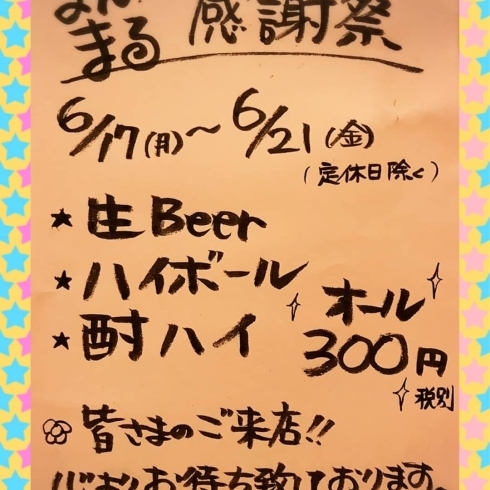 まる 感謝祭
6/17(月)～6/21(金)
(定休日除く)
★ 生Beer
★ ハイボール
★ 酎ハイ
オール
300円
税別
皆さまのご来店!!
心よりお待ち致しております。